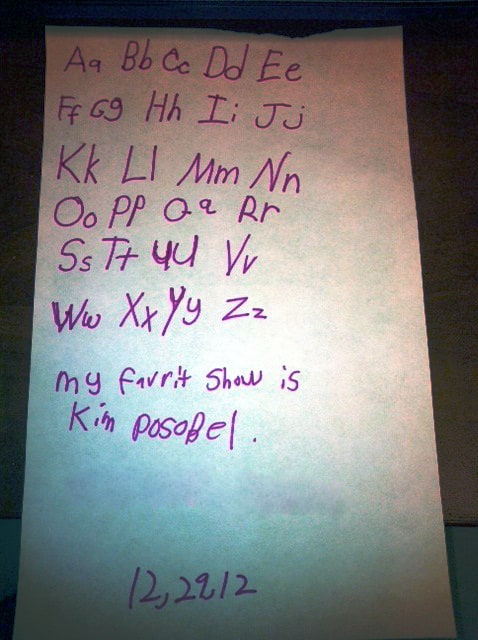 Aa Bb Cc Dd Ee
Ff Gg Hh Ii Jj
Kk Ll Mm Nn
Oo PP Qq Rr
Ss Tt UU Vv
Ww Xx Yy Zz
my favrit show is
Kim posoBel.
12,29,12